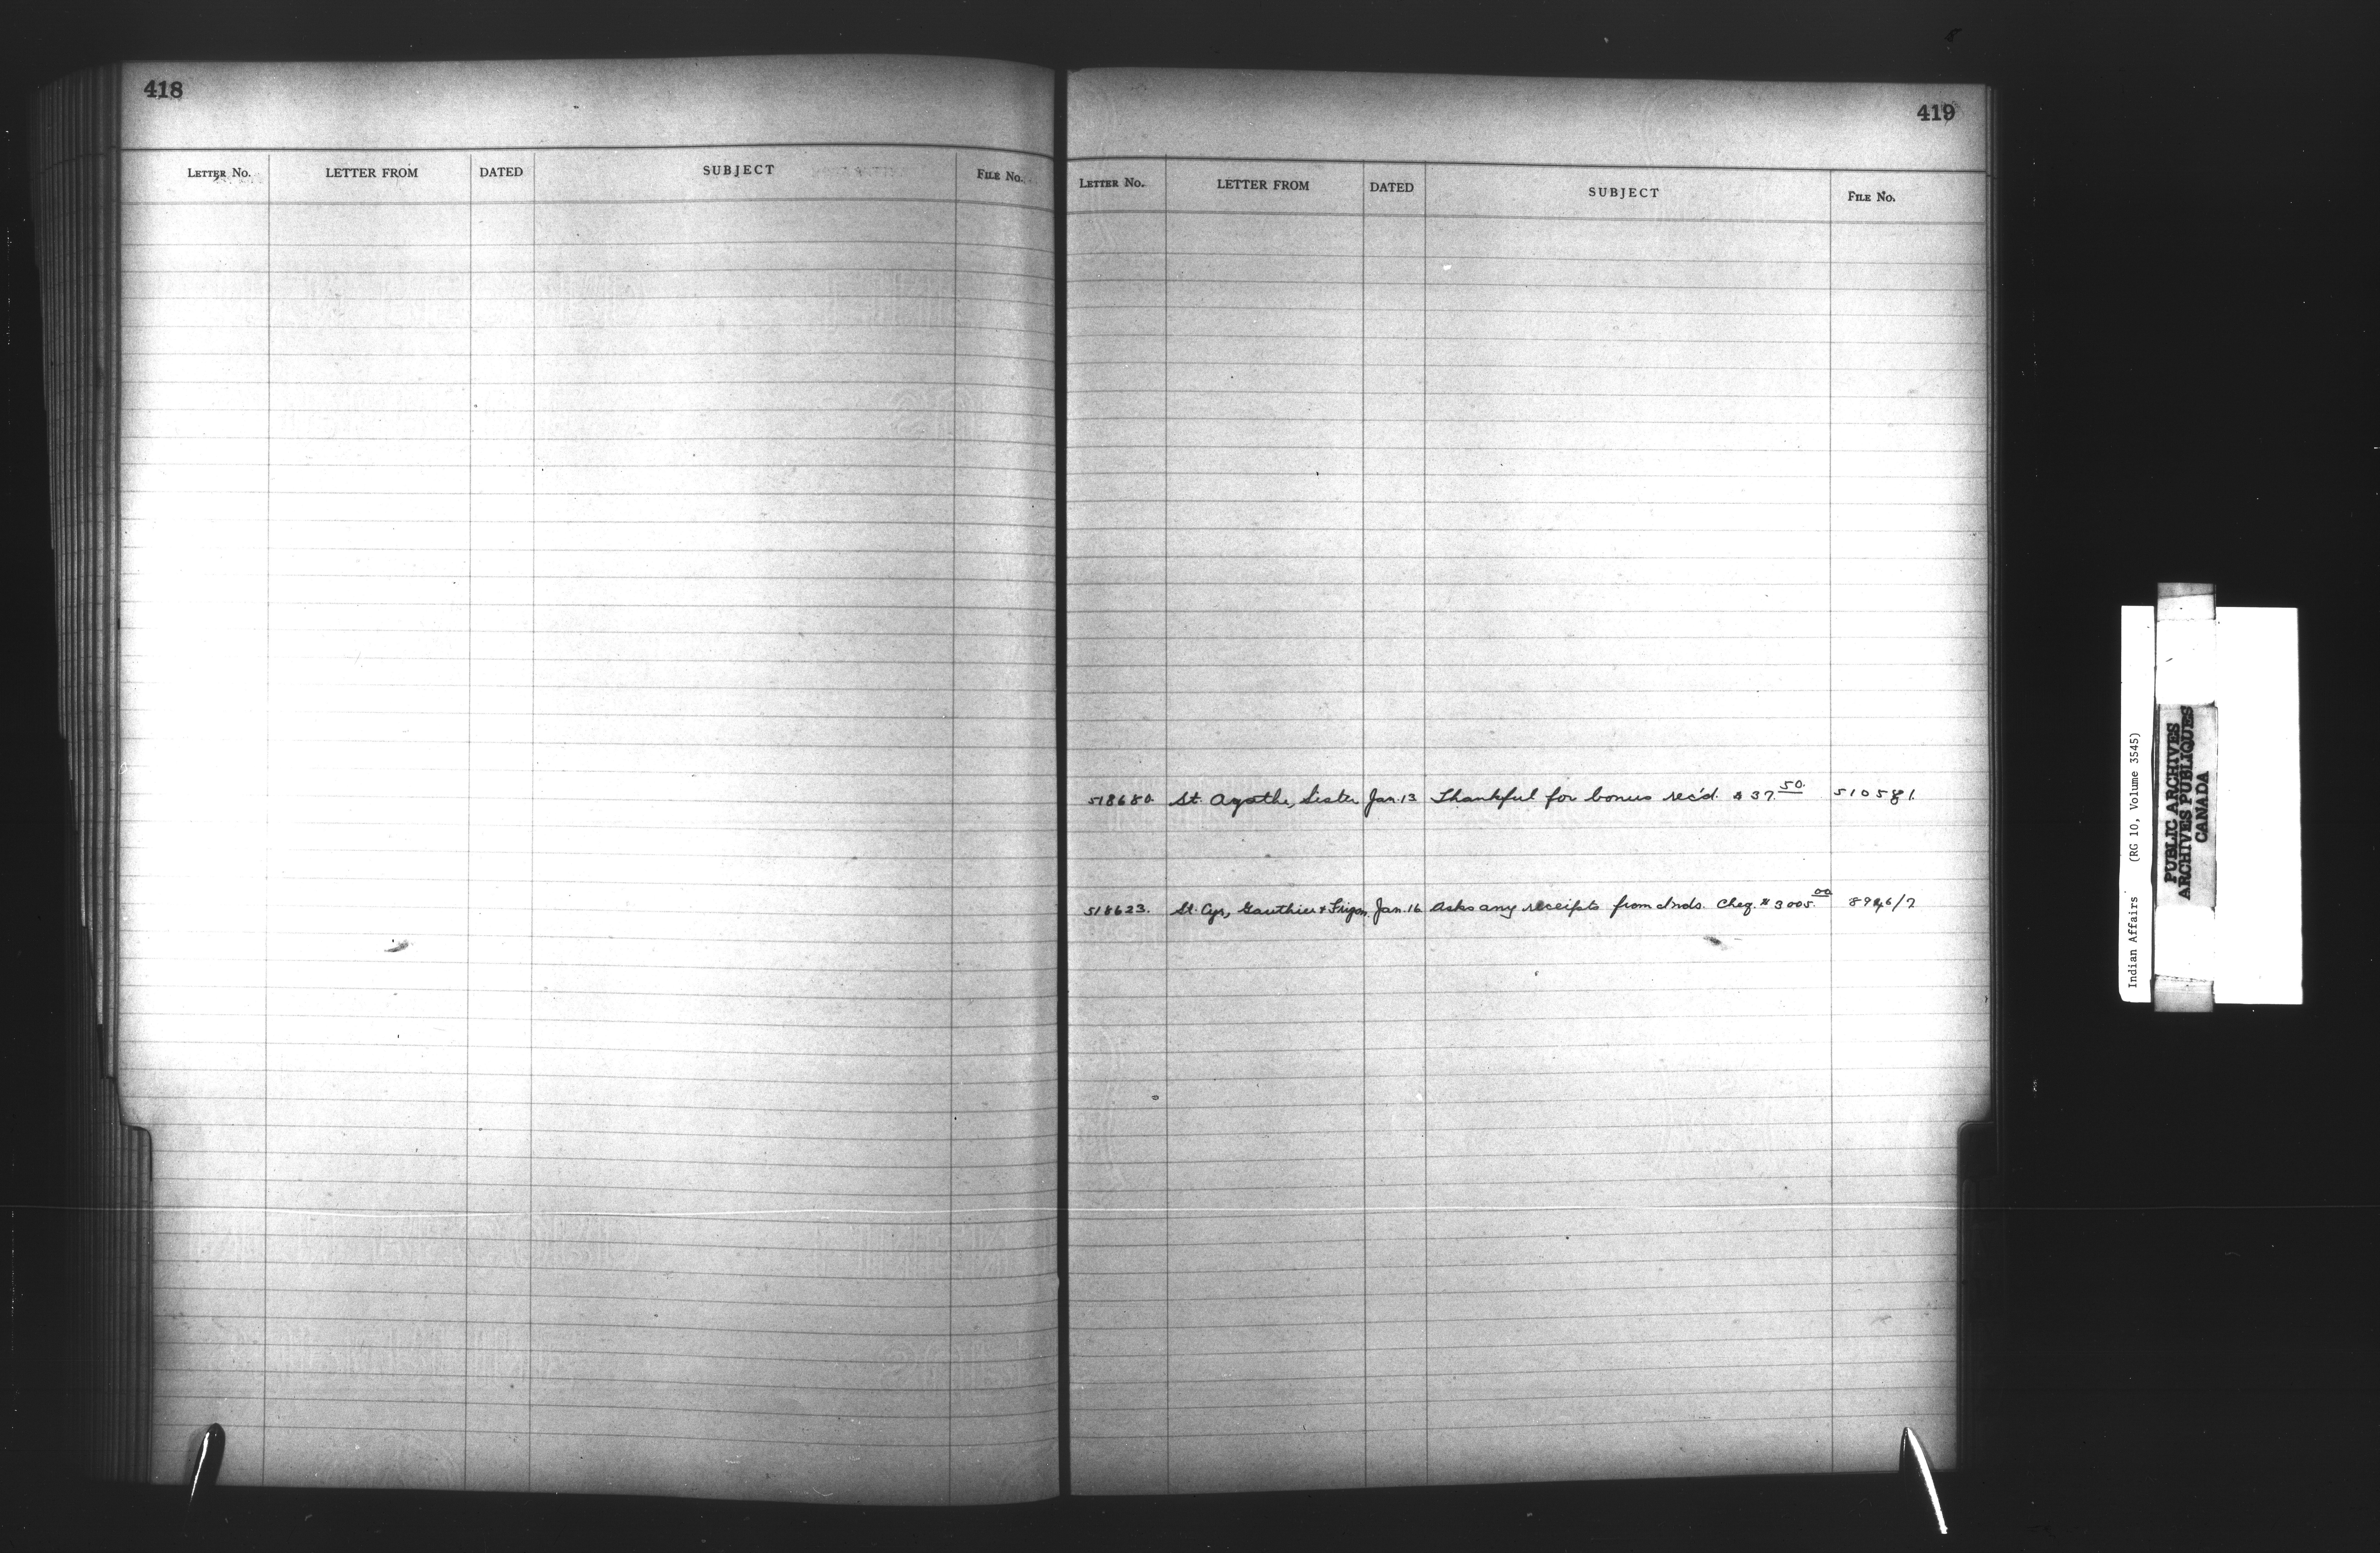 418
LETTER No. LETTER FROM DATED SUBJECT FILE No.
419
LETTER No. LETTER FROM DATED SUBJECT FILE No.
518680. St. Agathe, Sister Jan. 13 Thankful for bonus rec'd. $37.50. 510581.
518623. St. Cyr, Gauthier & Frigon, Jan. 16 Asks any receipts from Inds. Cheq. $3005.00
Indian Affairs (RG 10, Volume 3545)
PUBLIC ARCHIVES
ARCHIVES PUBLIQUES
CANADA